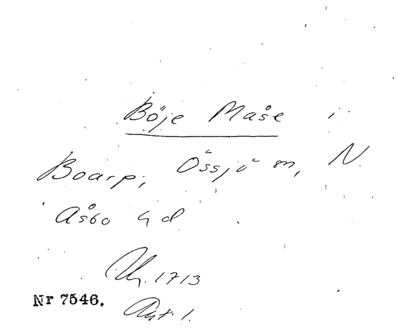 Böje Måse i
Boarp, Össjö sn, N.
Åsbo hd.
Uh. 1713
Nr 7546.
Ant 1.